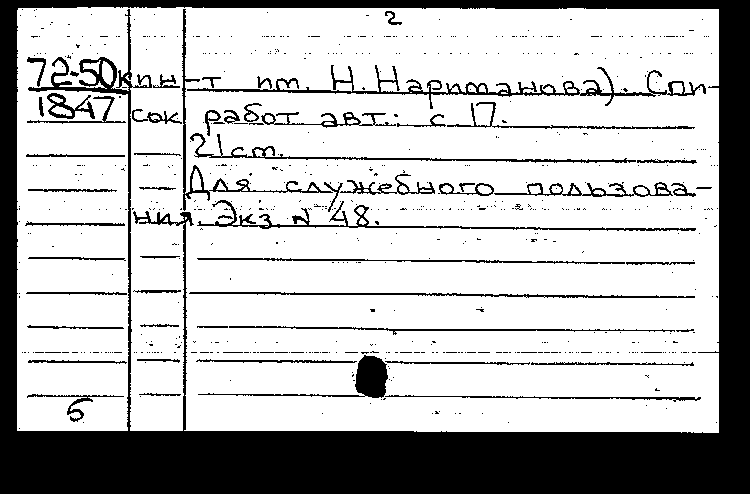 2
72-50 кпн-т пт. Н. Нариманова). Спи-
1847 сок работ авт.: с 17.
21 ст.
Для служебного пользова-
ния. Экз. N 48.
5